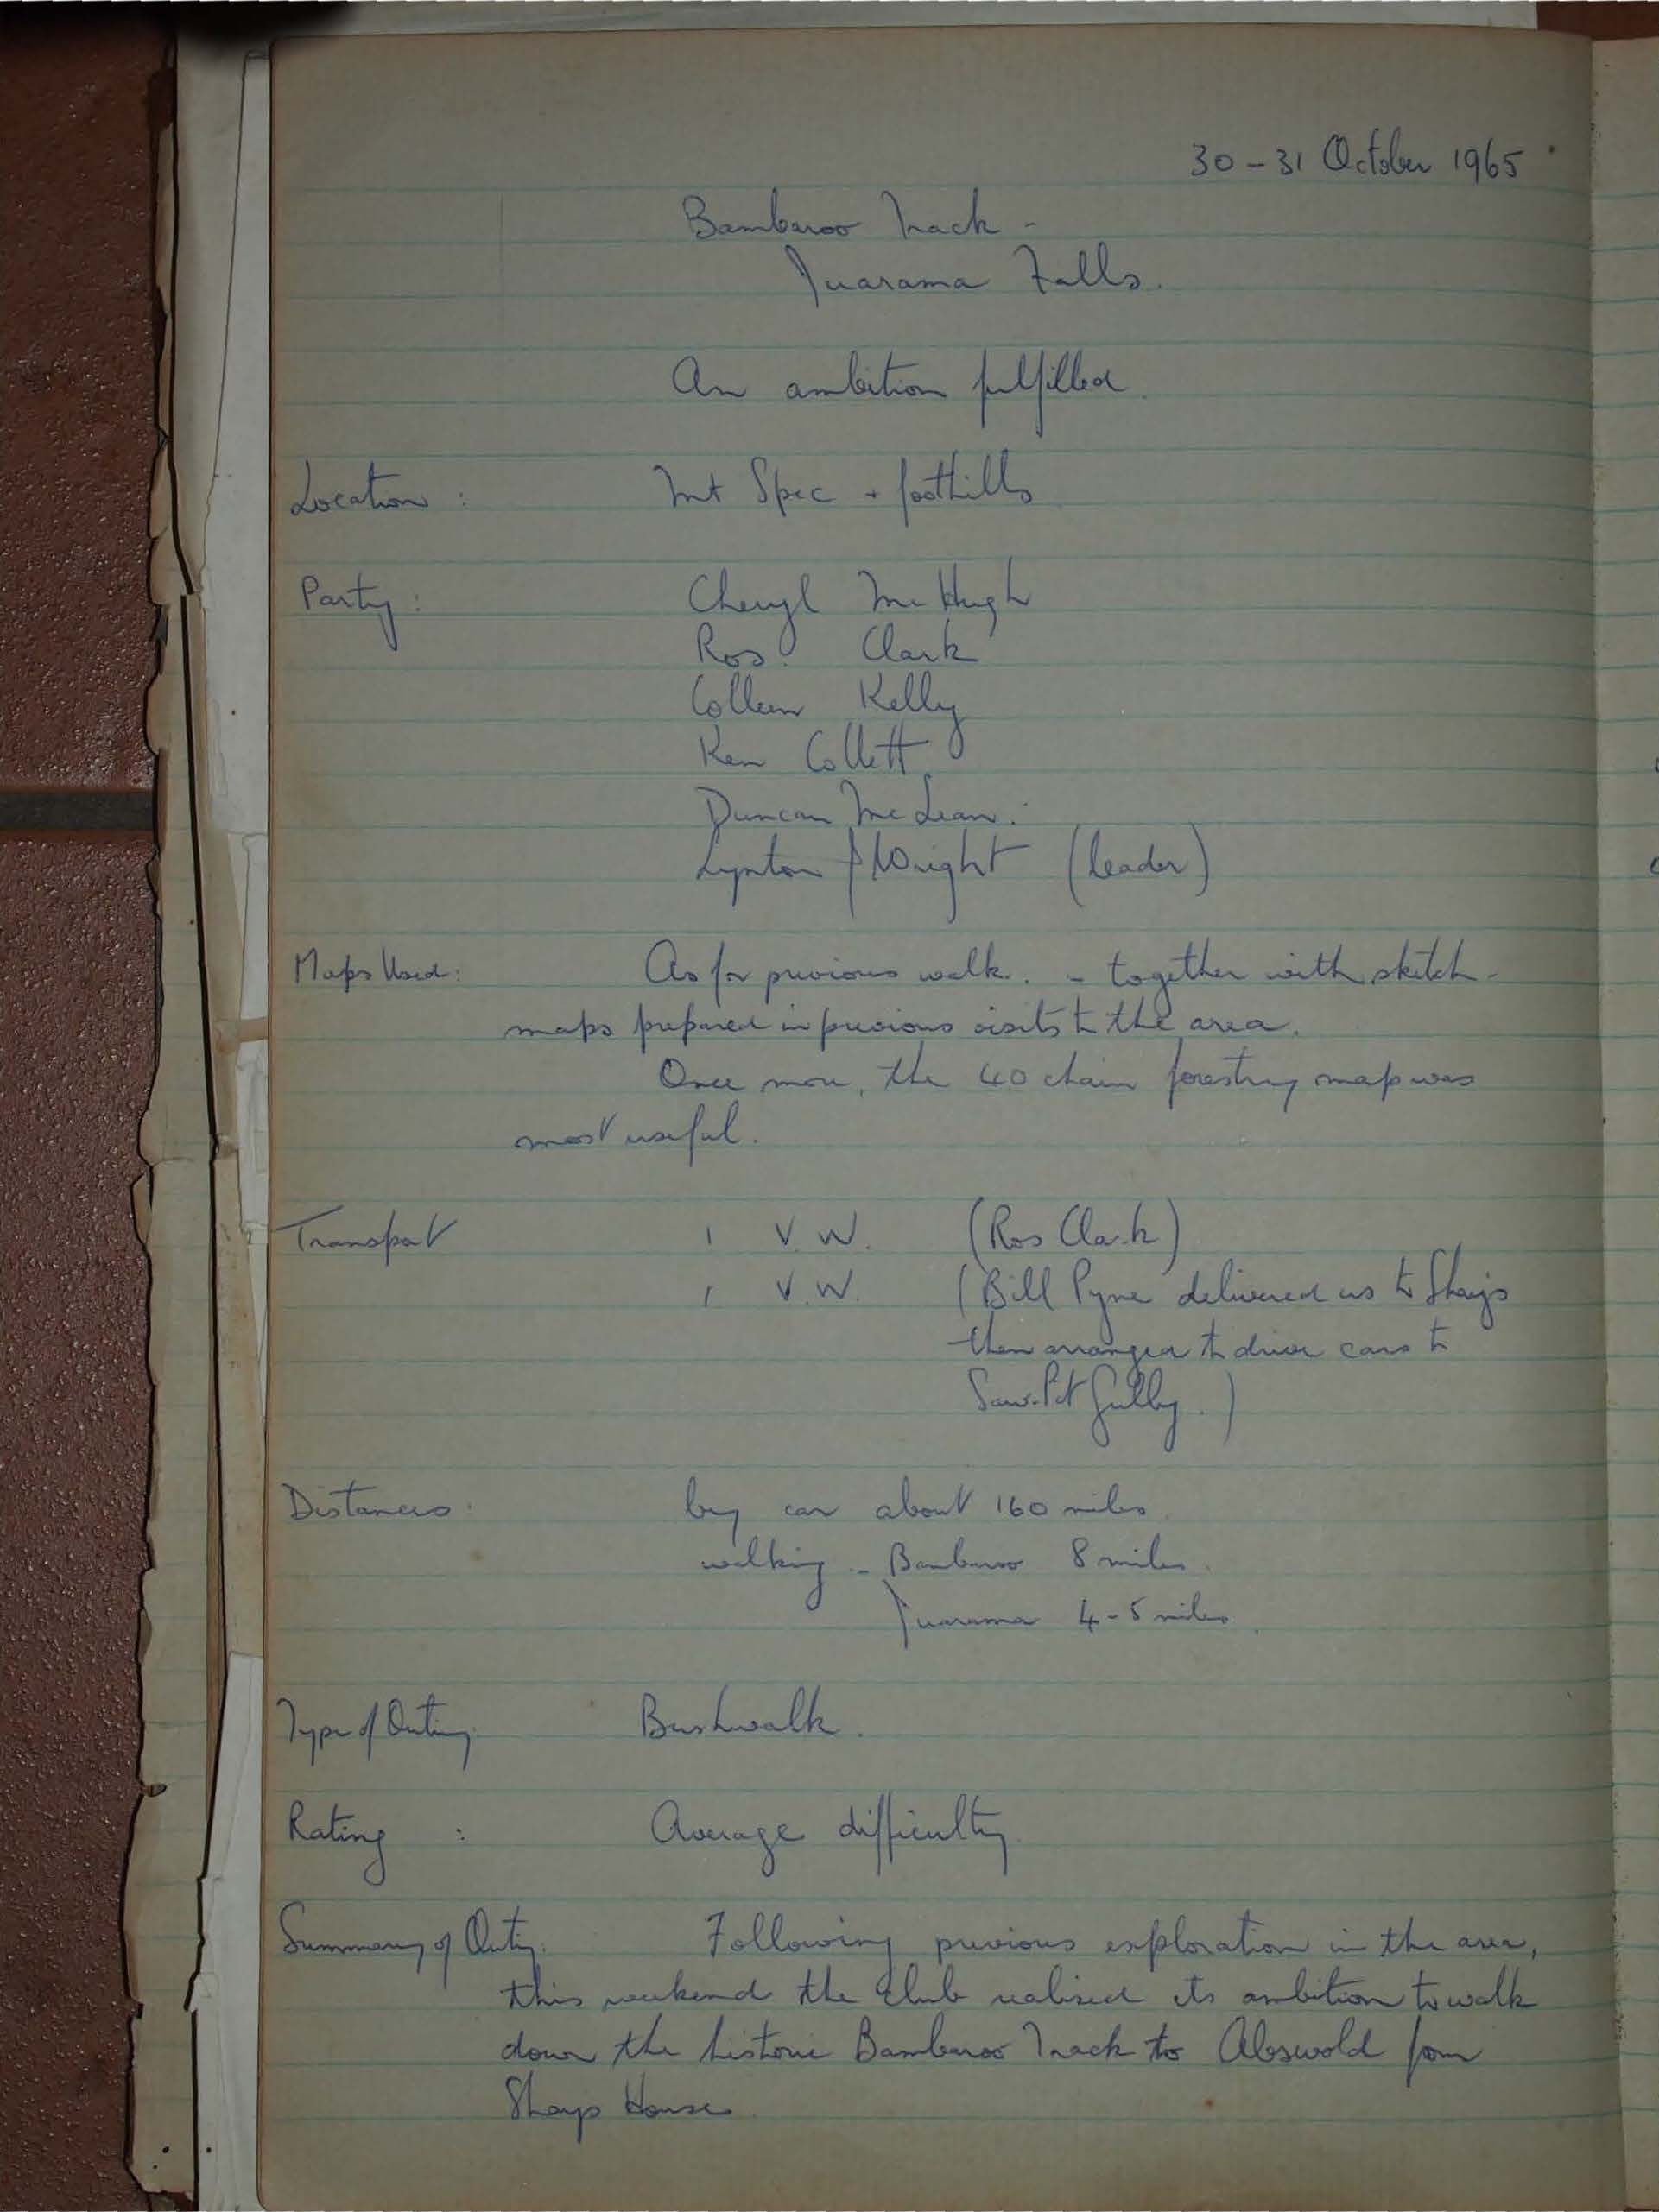 30 - 31 October 1965
Bambaroo Track -
Juarama Falls.
An ambition fulfilled.
Location : Mt Spec + foothills
Party : Cheryl McHugh
Ros. Clark
Colleen Kelly
Ken Collett
Duncan McLean.
Lynton Wright (leader)
Maps Used : As for previous walk. - together with sketch-
maps prepared in previous visits to the area.
Once more, the 40 chain forestry map was
most useful.
Transport 1 V.W. (Ros Clark)
1 V.W. (Bill Pyne delivered us to Shays
then arranged to drive cars to
Saw-Pit Gully.)
Distances. by car about 160 miles.
walking - Bambaroo 8 miles.
Juarama 4-5 miles.
Type of Outing. Bushwalk.
Rating : Average difficulty.
Summary of Outing. Following previous exploration in the area,
this weekend the club realised its ambition to walk
down the historic Bambaroo Track to Abswold from
Shays House.